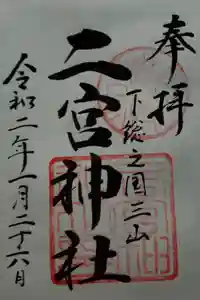 奉拝
下総之国三山
二宮神社
令和二年一月二十六日